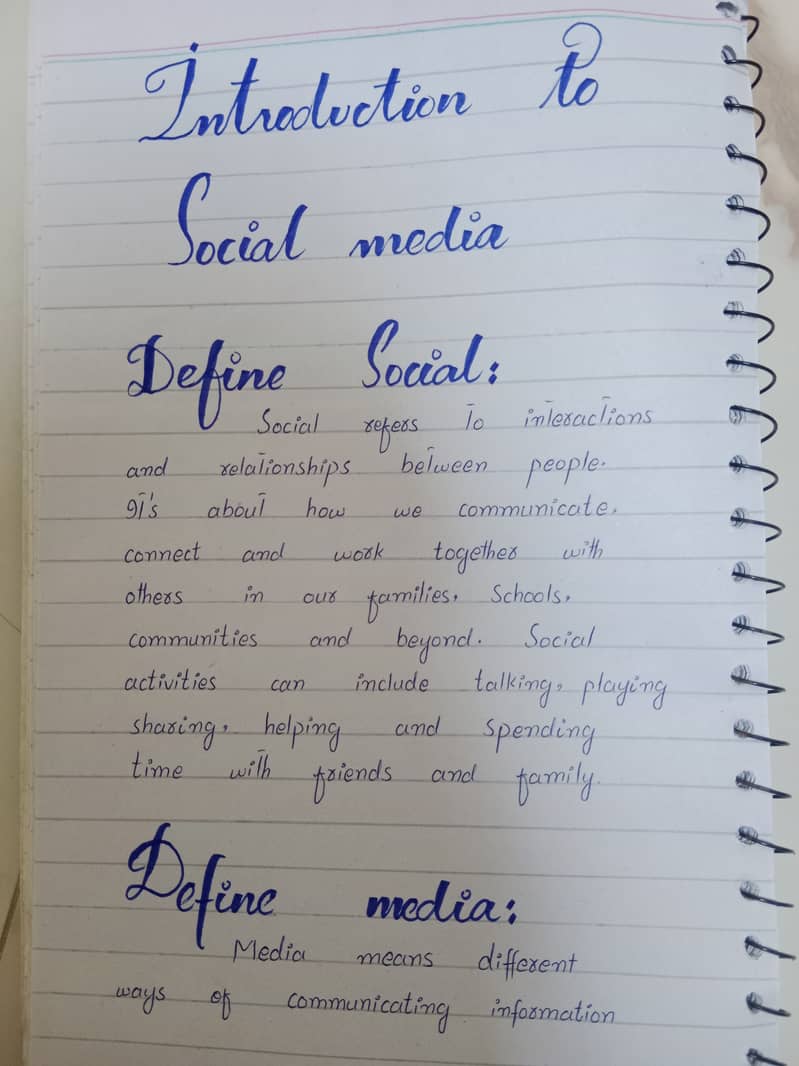 Introduction to
Social media
Define Social:
Social refers to interactions
and relationships between people.
It's about how we communicate,
connect and work together with
others in our families, Schools,
communities and beyond. Social
activities can include talking, playing
sharing, helping and spending
time with friends and family.
Define media:
Media means different
ways of communicating information